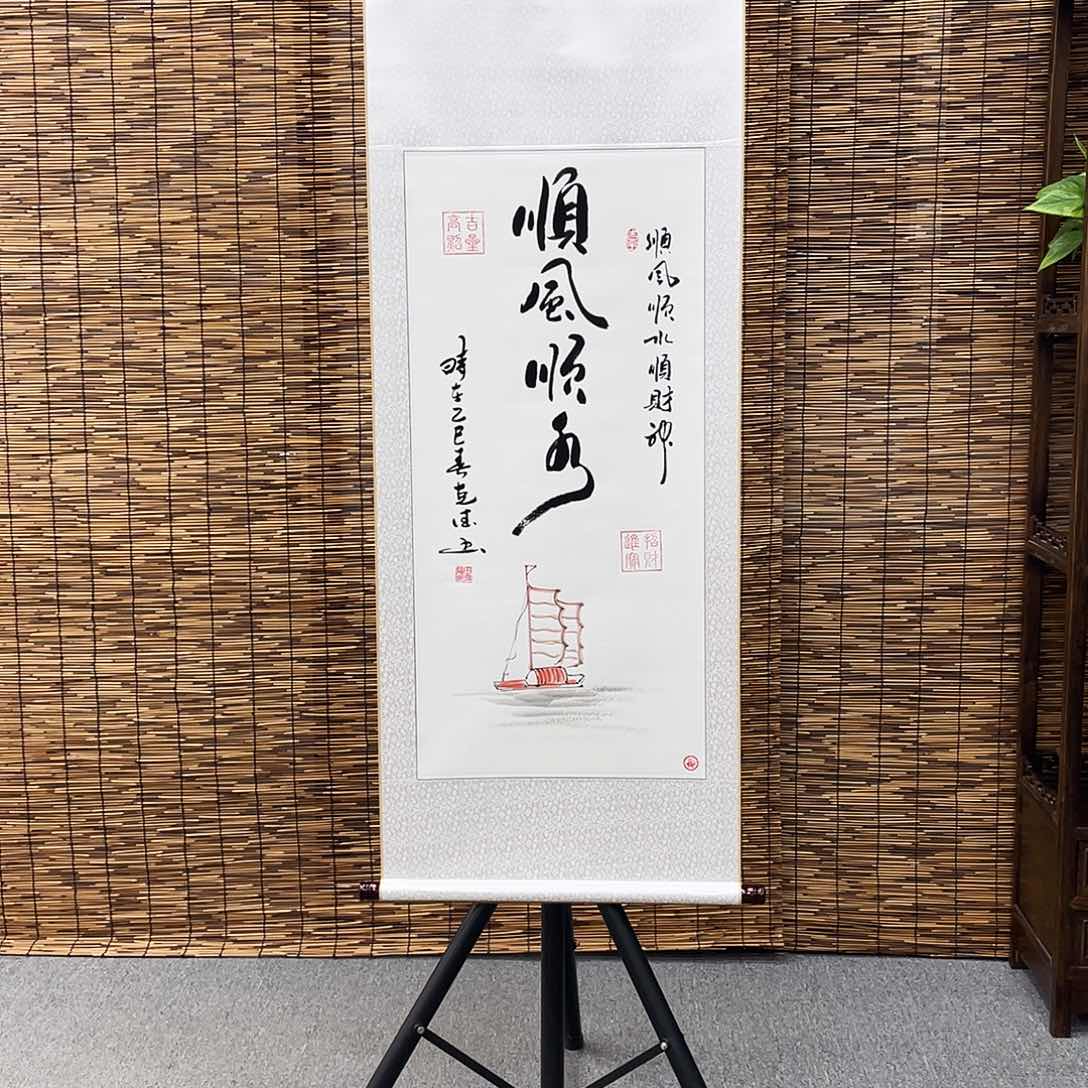 順風順水財神
順風順水
時在乙巳春克法書
吉星高照
招財進寶